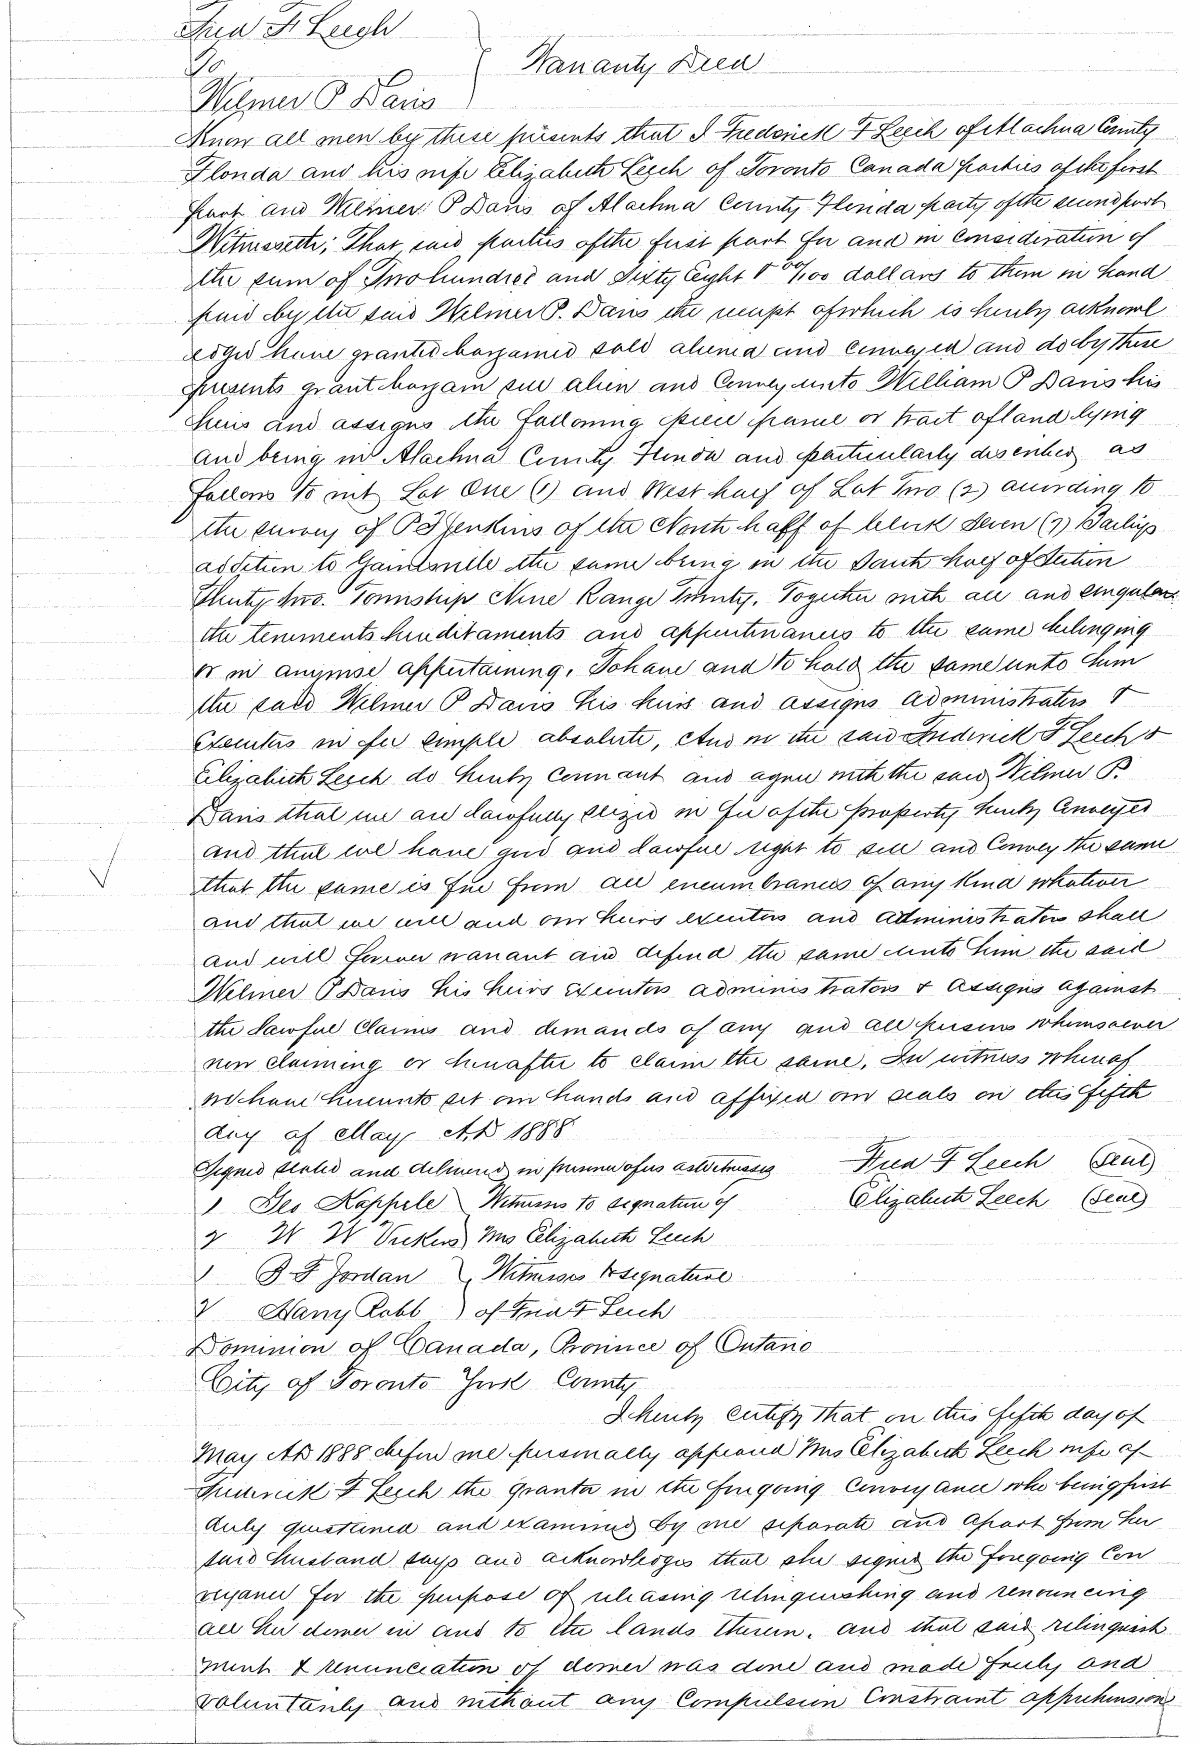 Fred F. Leech
To
Warranty Deed
Wilmer P Davis
Know all men by these presents that I Frederick F Leech of Alachua County
Florida and his wife Elizabeth Leech of Toronto Canada parties of the first
part and Wilmer P Davis of Alachua County Florida party of the second part
Witnesseth; That said parties of the first part for and in consideration of
the sum of Two hundred and Sixty Eight & 00/100 dollars to them in hand
paid by the said Wilmer P. Davis the receipt of which is hereby acknowl
edged have granted bargained sold aliened and conveyed and do by these
presents grant bargain sell alien and Convey unto William P Davis his
heirs and assigns the following piece parcel or tract of land lying
and being in Alachua County Florida and particularly described as
follows to wit Lot One (1) and West half of Lot Two (2) according to
the survey of P J Jenkins of the North half of block Seven (7) Baileys
addition to Gainesville the same being in the South half of Section
Thirty two. Township Nine Range Twenty. Together with all and singular
the tenements hereditaments and appurtenances to the same belonging
or in anywise appertaining, To have and to hold the same unto him
the said Wilmer P Davis his heirs and assigns administrators &
Executors in fee simple absolute, And we the said Frederick F Leech &
Elizabeth Leech do hereby covenant and agree with the said Wilmer P.
Davis that we are lawfully seized in fee of the property hereby Conveyed
and that we have good and lawful right to sell and Convey the same
that the same is free from all encumbrances of any kind whatever
and that we will and our heirs executors and administrators shall
and will forever warrant and defend the same unto him the said
Wilmer P Davis his heirs executors administrators & assigns against
the lawful claims and demands of any and all persons whomsoever
now claiming or hereafter to claim the same. In witness whereof
we have hereunto set our hands and affixed our seals on this fifth
day of May A.D 1888
Signed sealed and delivered in presence of us as Witnesses Fred F Leech (Seal)
1 Geo Kappele Witnesses to signature of Elizabeth Leech (Seal)
2 W W Vickers Mrs Elizabeth Leech
1 B F Jordan Witnesses to signature
2 Harry Robb of Fred F Leech
Dominion of Canada, Province of Ontario
City of Toronto York County
I hereby certify that on this fifth day of
May AD 1888 before me personally appeared Mrs Elizabeth Leech wife of
Frederick F Leech the grantor in the foregoing conveyance who being first
duly questioned and examined by me separate and apart from her
said husband says and acknowledges that she signed the foregoing Con
veyance for the purpose of releasing relinquishing and renouncing
all her dower in and to the lands therein. and that said relinquish
ment & renunciation of dower was done and made freely and
voluntarily and without any Compulsion Constraint apprehension